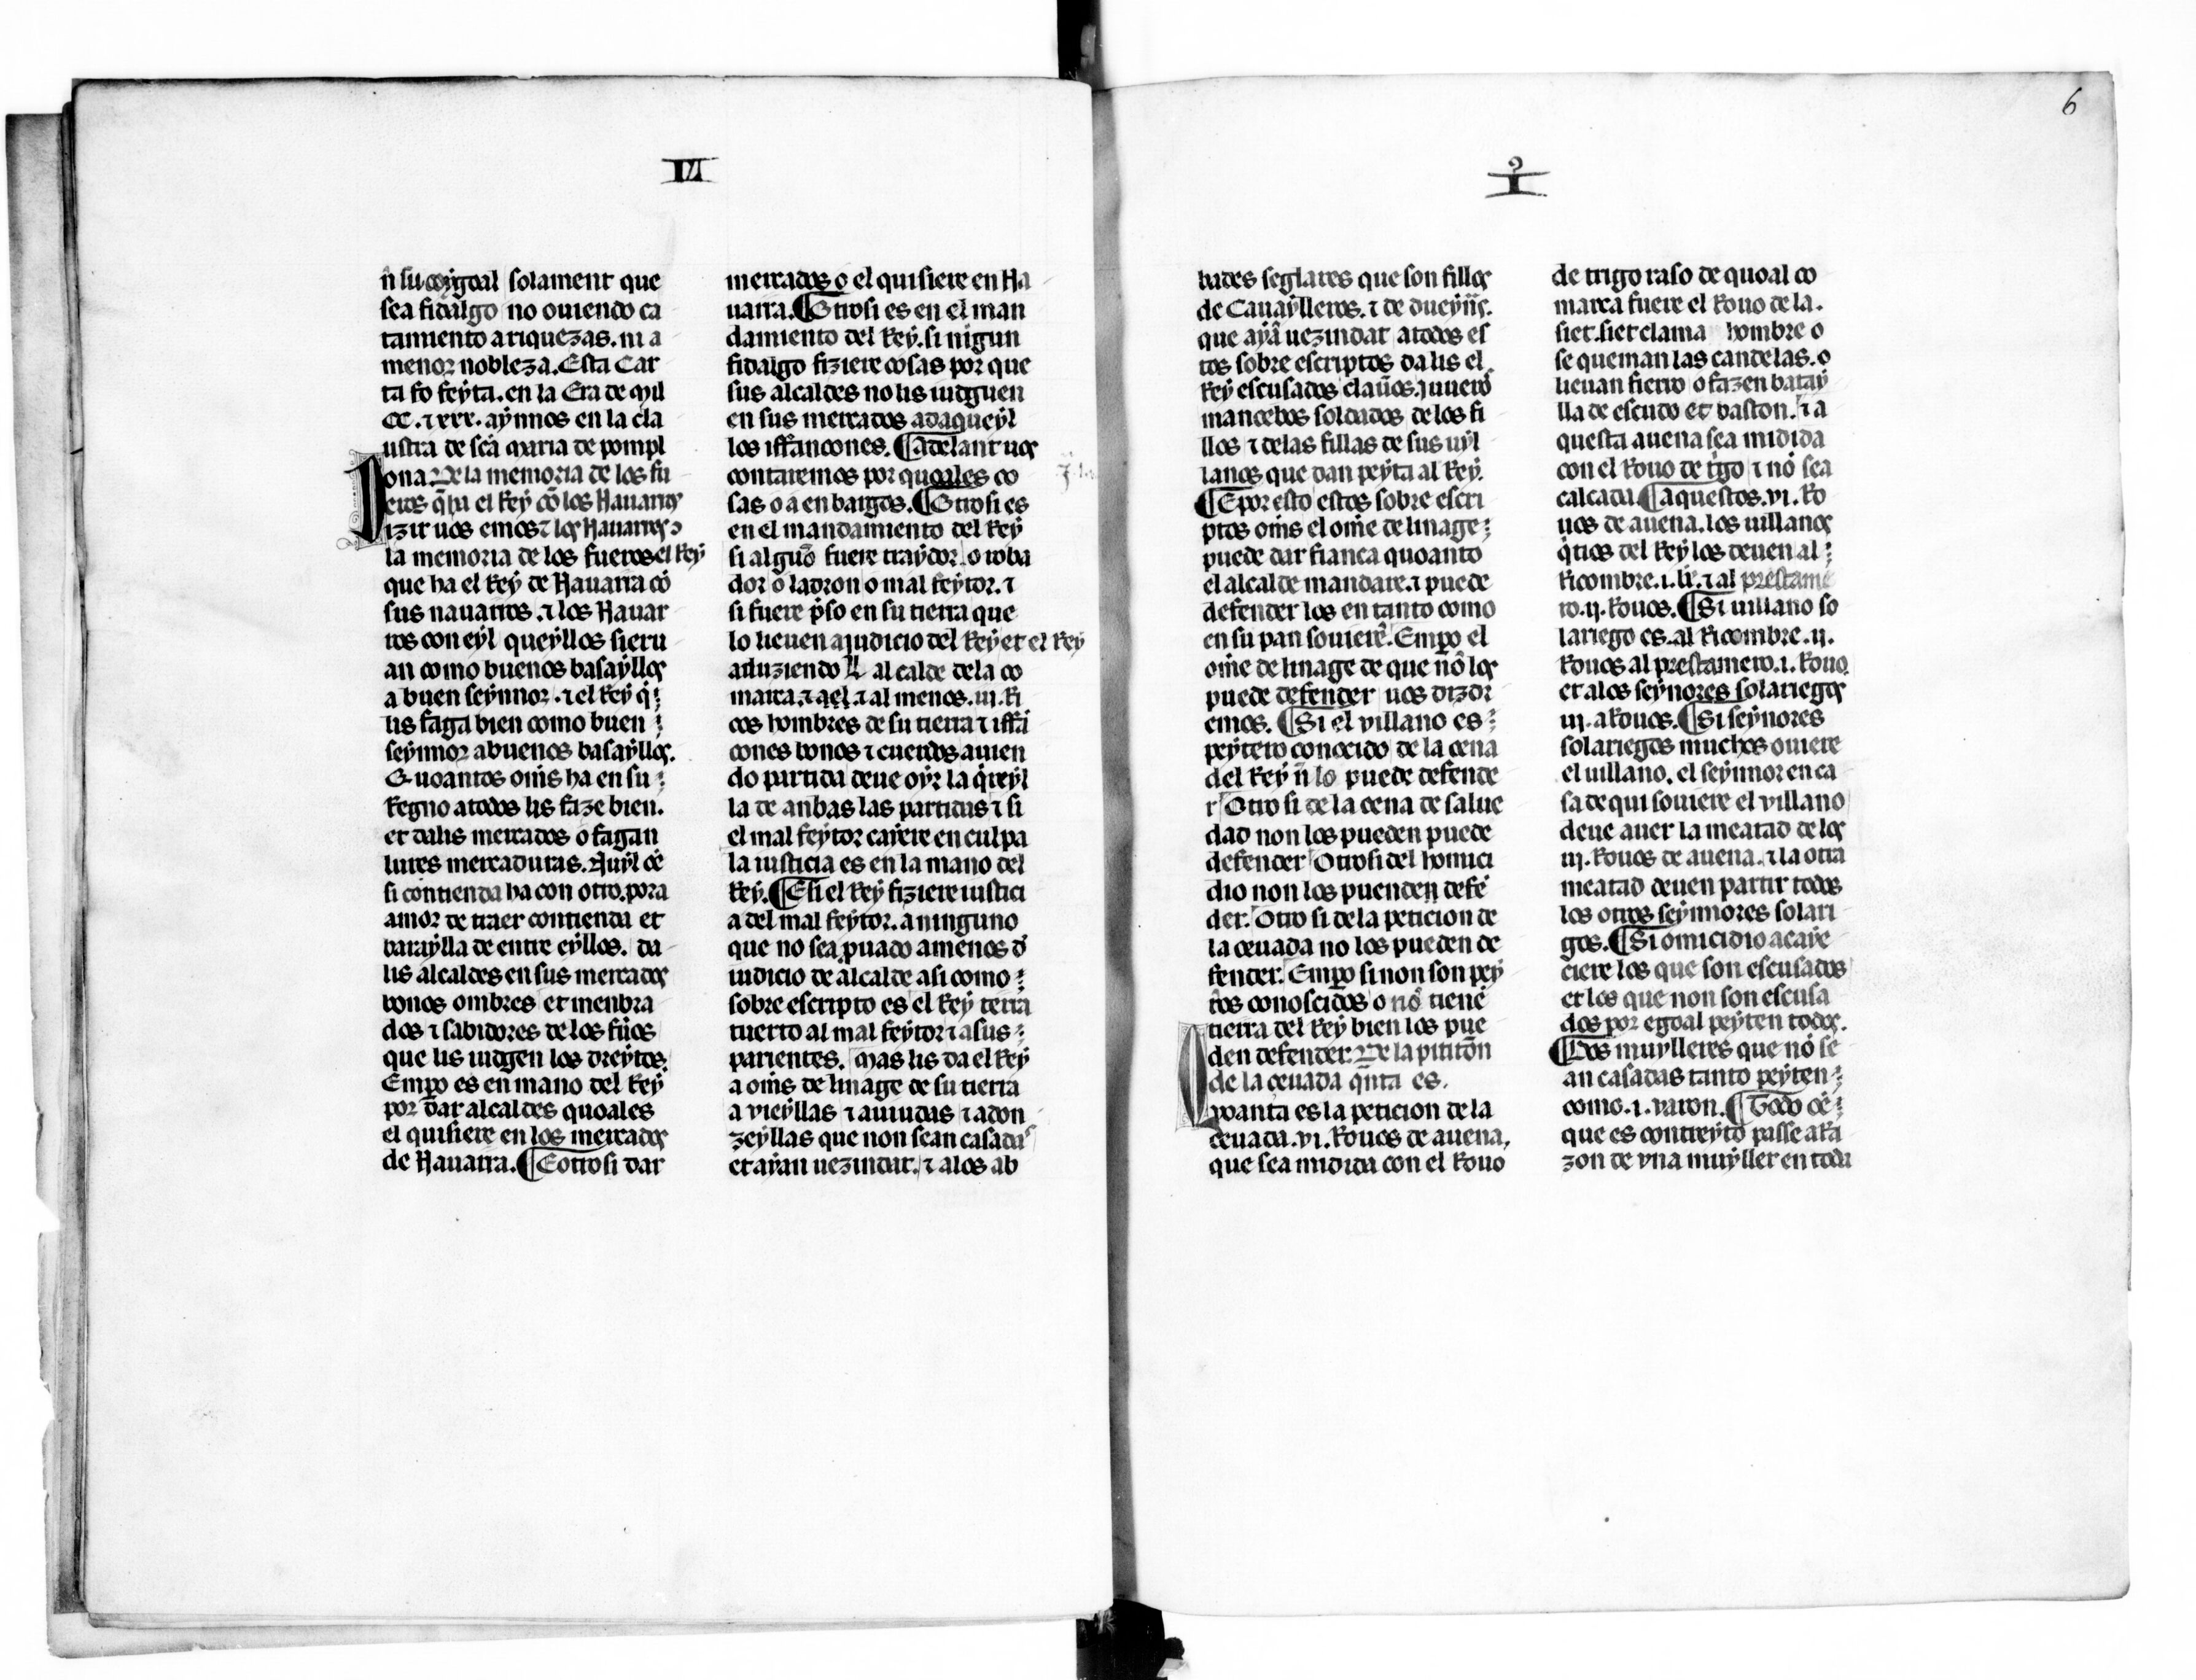 IVI
n̄ su coygoal solament que
sea fidalgo no ouiendo ca
tamiento a riquezas. ni a
menor nobleza. Esta Car
ta fo feyta. en la Era de mil
CC. ⁊ xxx. aynnos en la cla
ustra de sc̄a maria de pompl
ona. De la memoria de los fu
eros q̄ ha el Rey cō los Nauarros
Dizir uos emos
la memoria de los fueros el Rey
que ha el Rey de Nauarra cō
sus nauarros. ⁊ los Nauar
ros con eyl queyllos sieru
an como buenos basayllos
a buen seynnor. ⁊ el Rey q̇
lis faga bien como buen
seynnor a buenos basayllos.
Quoantos om̄s ha en su
Regno a todos lis faze bien.
et dalis mercados o fagan
lures mercaduras. Auyl dē
si contienda ha con otro. pora
amor de traer contienda et
baraylla de entre eyllos. da
lis alcaldes en sus mercados
bonos ombres et menbra
dos ⁊ sabidores de los fūos
que lis iudgen los dreytos.
Emp̄o es en mano del Rey
por dar alcaldes quoales
el quisiere en los mercados
de Nauarra. ¶ E otrosi dar
mercados o el quisiere en Na
uarra. ¶ Otrosi es en el man
damiento del Rey. si nigun
fidalgo fiziere cosas por que
sus alcaldes no lis iudguen
en sus mercados ad aqueyl
los iffancones. ¶ Adelant uos
contaremos por quoales co
sas o a enbargos. ¶ Otrosi es
en el mandamiento del Rey
si alguō fuere traydor. o roba
dor o ladron o mal feytor. ⁊
si fuere p̄so en su tierra que
lo lieuen a judicio del Rey et el Rey
aduziendo alcalde de la co
marca. ⁊ a el. ⁊ al menos. iii. Ri
cos hombres de su tierra ⁊ iffā
cones bonos ⁊ cuerdos auien
do partida deue oyr la q̇reyl
la de anbas las partidas ⁊ si
el mal feytor cayere en culpa
la iusticia es en la mano del
Rey. ¶ E si el Rey fiziere iustici
a del mal feytor. a ninguno
que no sea puado a menos d̄
iudicio de alcalde asi como
sobre escripto es el Rey terra
tuerto al mal feytor ⁊ a sus
parientes. mas lis da el Rey
a om̄s de linage de su tierra
a vieyllas ⁊ a uiudas ⁊ a don
zeyllas que non sean casadas
et ayan uezindat. ⁊ a los ab
I
6
bades seglares que son fillos
de Cauaylleros. ⁊ de dueyn̄s.
que ayā uezindat a todos es
tos sobre escriptos da lis el
Rey escusados clau̇os. juuerō
mancebos soldados de los fi
llos ⁊ de las fillas de sus uyl
lanos que dan peyta al Rey.
¶ E por esto estos sobre escri
ptos om̄s el om̄e de linage
puede dar fianca quoanto
el alcalde mandare. ⁊ puede
defender los en tanto como
en su pan souierē. Emp̄o el
om̄e de linage de que nō los
puede defender uos dizdr
emos. ¶ Si el villano es
peytero conocido de la cena
del Rey n̄ lo puede defende
r Otro si de la cena de salue
dad non los pueden puede
defender Otrosi del homici
dio non los puenden defē
der. Otro si de la peticion de
la ceuada no los pueden de
fender. Emp̄o si non son pey
t̄os conoscidos o nō tienē
tierra del Rey bien los pue
den defender. De la pitiōn
de la ceuada q̄nta es.
Quanta es la peticion de la
ceuada. vi. Rouos de auena,
que sea midida con el Rouo
de trigo raso de quoal co
marca fuere el Rouo de la.
siet. siet clama hombre o
se queman las candelas. o
lieuan fierro o fazen batay
lla de escudo et baston. ⁊ a
questa auena sea midida
con el Rouo de t̄igo ⁊ nō sea
calcada. ¶ Aquestos. vi. Ro
uos de auena. los uillanos
q̇tios del Rey los deuen al
Ricombre. i. ⁊ al prestame
ro. ii. Rouos. ¶ Si uillano so
lariego es. al Ricombre. ii.
Rouos al prestamero. i. Rouo.
et a los seynores solariegos
iii. a Rouos. ¶ Si seynores
solariegos muchos ouiere
el uillano. el seynnor en ca
sa de qui souiere el villano
deue auer la meatad de los
iii. Rouos de auena. ⁊ la otra
meatad deuen partir todos
los otros seynnores solari
gos. ¶ Si omicidio acaye
ciere los que son escusados
et los que non son escusa
dos por egoal peyten todos.
¶ Dos muylleres que nō se
an casadas tanto peyten
como. i. varon. ¶ Todo dē
que es contreyto passe a Ra
zon de vna muyller en toda